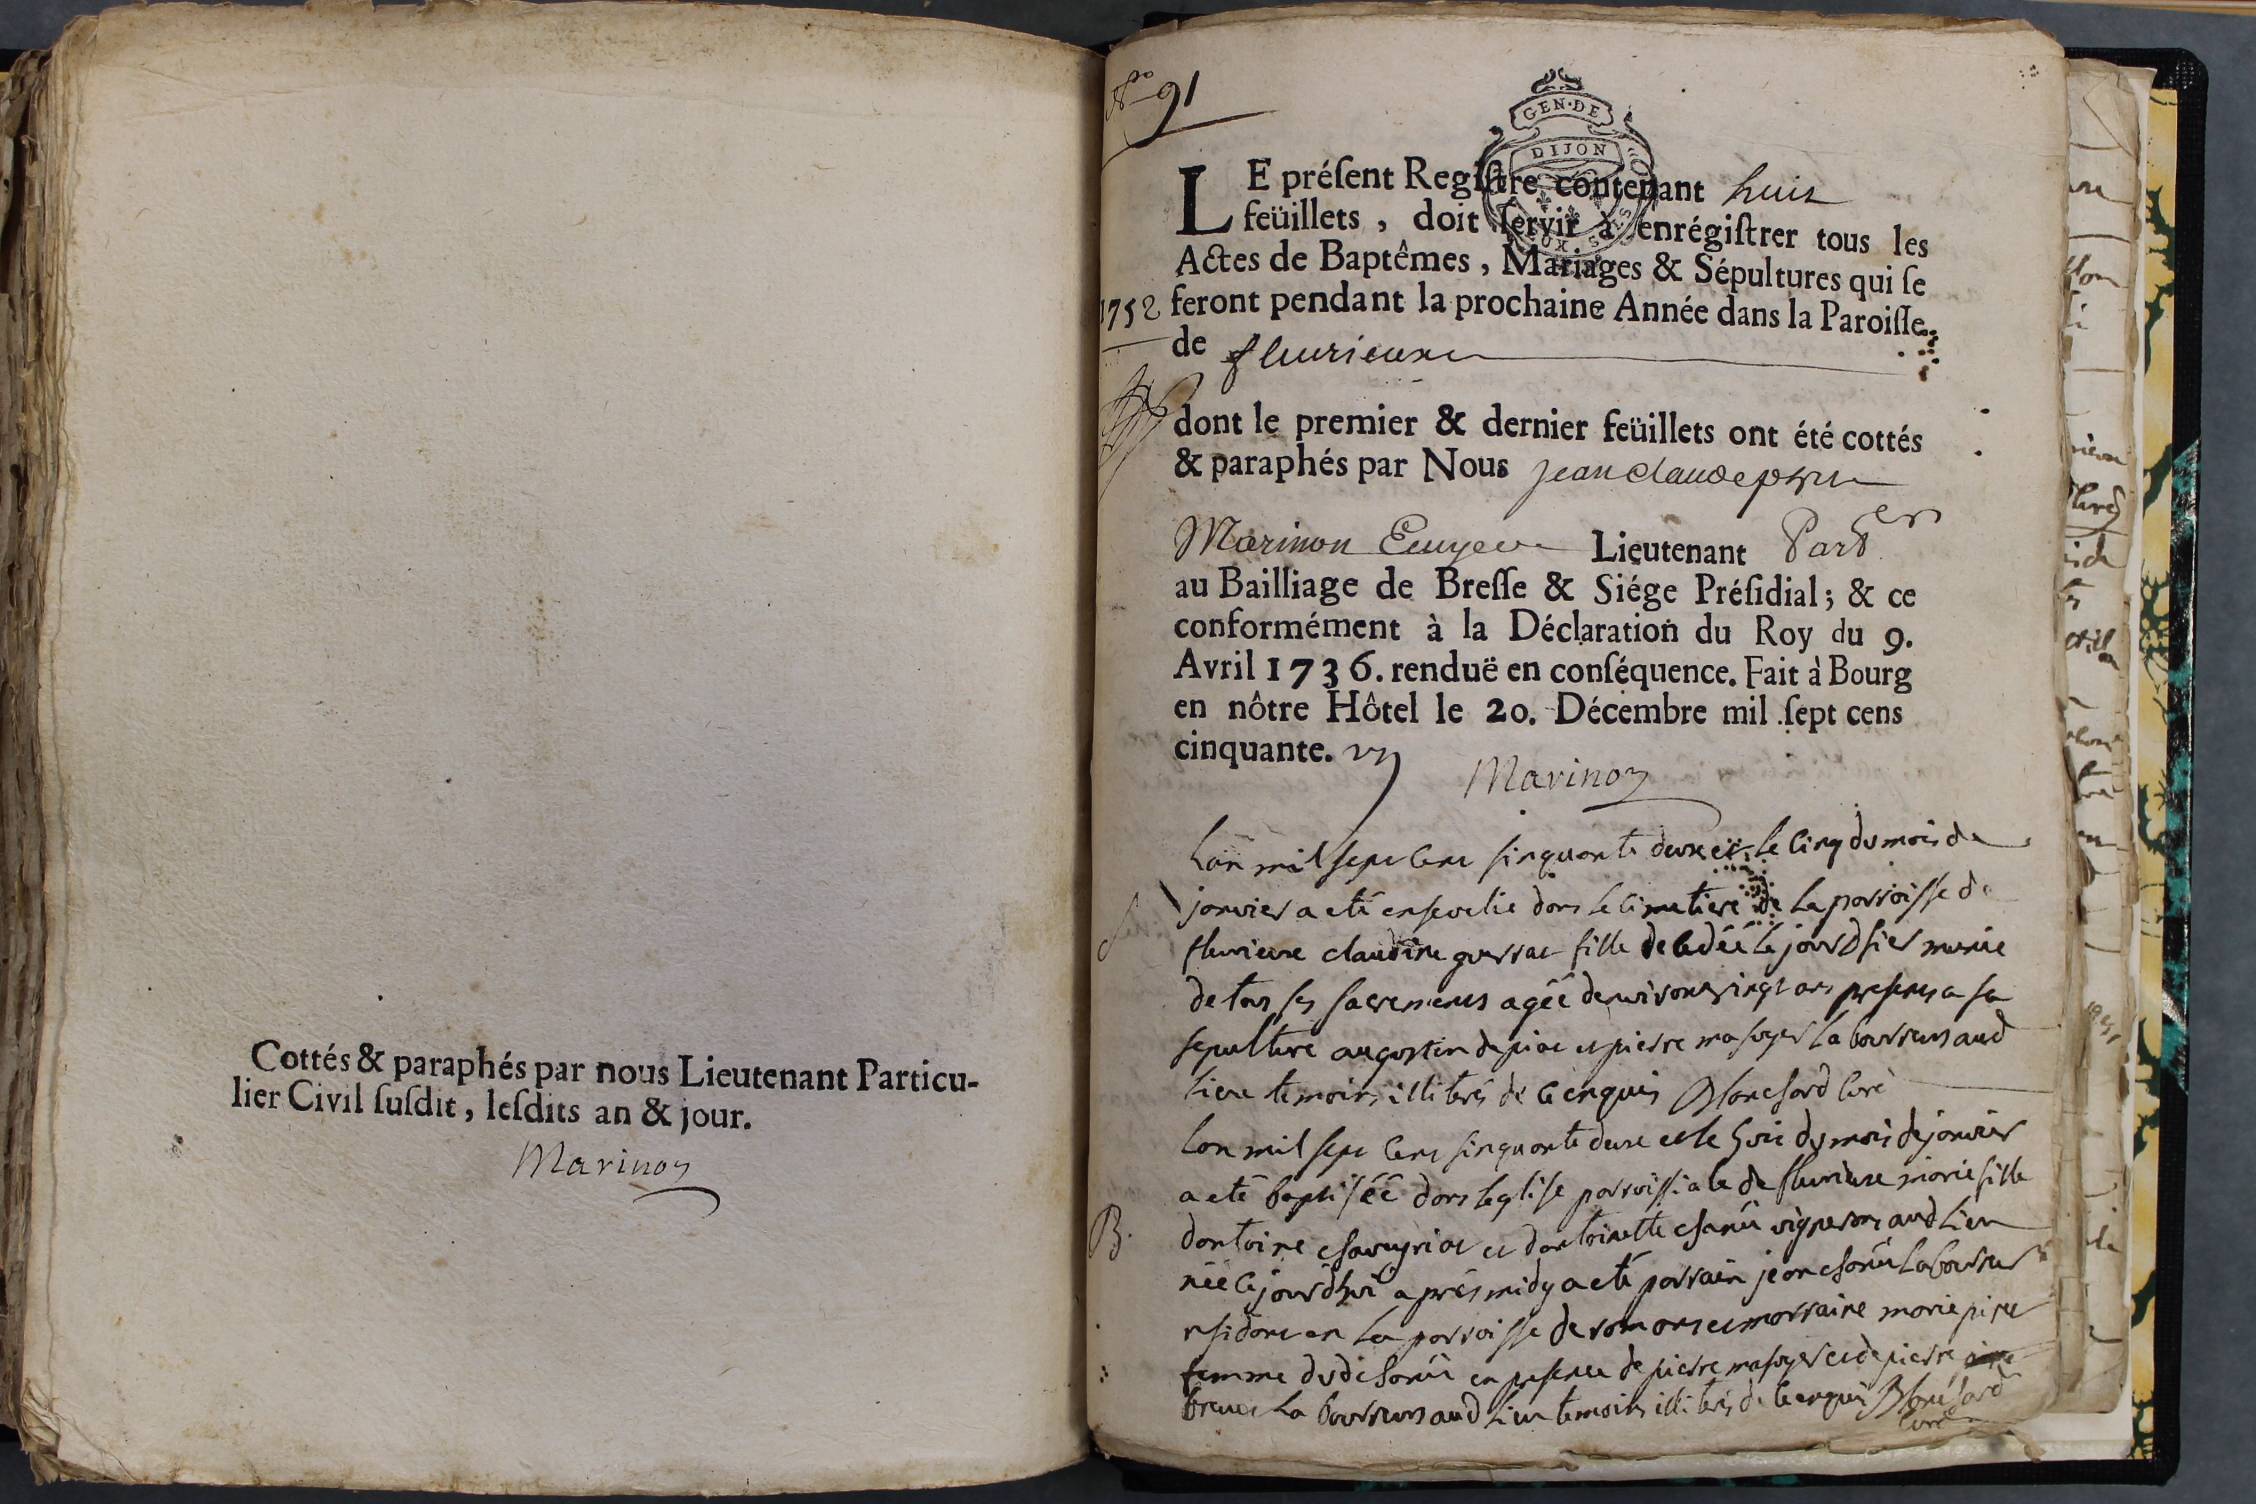 Cottés & paraphés par nous Lieutenant Particu-
lier Civil ſuſdit, leſdits an & jour.
Marinon
N.º 91
GEN·DE
DIJON
LE préſent Regiſtre contenant huit
feüillets, doit ſervir à enrégiſtrer tous les
Actes de Baptêmes, Mariages & Sépultures qui ſe
1752 feront pendant la prochaine Année dans la Paroiſſe
de fleurieux
dont le premier & dernier feüillets ont été cottés
& paraphés par Nous jean claude
Marinon Ecuyer Lieutenant Parter
au Bailliage de Breſſe & Siége Préſidial; & ce
conformément à la Déclaration du Roy du 9.
Avril 1736. renduë en conſéquence. Fait à Bourg
en nôtre Hôtel le 20. Décembre mil ſept cens
cinquante. un
Marinon
Lan mil sept cent sinquante deux et le cinq du mois de
S janvier a eté ensevelie dans le cimetiere de la parroisse de
fleurieux claudine fille decedéé le jour dhier munie
de tous ses sacremens agéé denviron vingt ans presens a sa
sepulture augustin et pierre masoyer laboureurs aud
lieu temoins illiterés de ce enquis Blanchard curé
Lan mil sept cent sinquante deux et le huit du mois de janvier
a eté baptiséé dans leglise parroissiale de fleurieux marie fille
B. dantoine et dantoinette chanû vignerons aud lieu
néé ce jourdhui apres midy a eté parrain jean chanû laboureur
residant en la parroisse de romans et marraine marie
femme dud chanû en presence de pierre masoyer et de pierre
laboureurs aud lieu temoins illiterés de ce enquis Blanchard
curé